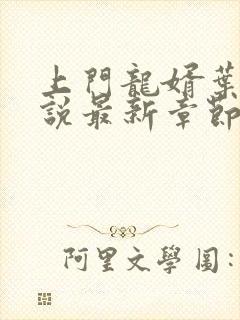 上門龍婿葉
說最新章節
阿里文學圖：